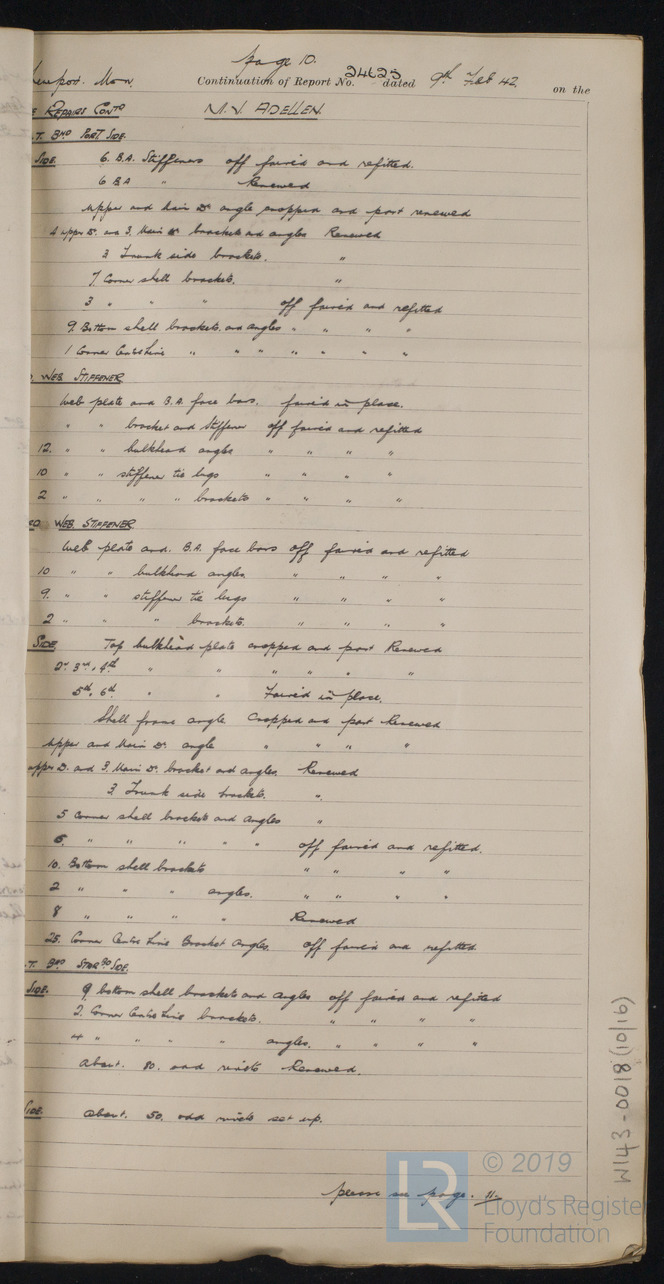 page 10.
Newport. Mon. Continuation of Report No. 24623 dated 9th Feb 42 on the
Repairs Contd M.V. ADELLEN.
T. BHD PORT SIDE.
SIDE. 6. B.A. Stiffeners off faired and refitted.
6 BA " Renewed
Upper and Main Dk angle cropped and part renewed
4 upper D. and 3. Main Dk brackets and angles Renewed
3 Trunk side brackets. "
7 Corner shell brackets. "
3 " " " off faired and refitted
9. Bottom shell brackets. and angles " " " "
1 Corner Centre Line " " " " " " "
WEB STIFFENER
Web plate and B.A. face bars. faired in place.
" " bracket and stiffener off faired and refitted
12. " " bulkhead angles " " " "
10 " " stiffener tie lugs " " " "
2 " " " " brackets " " " "
WEB. STIFFENER
Web plate and. B.A. face bars off faired and refitted
10 " " bulkhead angles. " " " "
9. " " stiffener tie lugs " " " "
2 " " " brackets. " " " "
SIDE. Top bulkhead plate cropped and part Renewed
2nd 3rd, 4th " " " " " "
5th, 6th " " Faired in place.
Shell frame angle Cropped and part Renewed
Upper and Main Dk angle " " " "
upper D. and 3. Main Dk. bracket and angles. Renewed
3 Trunk side brackets. "
5 Corner shell brackets and angles "
6. " " " " " off faired and refitted.
10. Bottom shell brackets " " " "
2 " " " angles. " " " "
8 " " " " Renewed
25. Corner Centre Line Bracket angles. off faired and refitted
T. BHD STARBD SIDE.
SIDE. 9 bottom shell brackets and angles off faired and refitted
2. Corner Centre Line brackets. " " " "
4 " " " " angles. " " " "
about. 80. odd rivets Renewed.
SIDE. about. 50. odd rivets set up.
please see page. 11.
W143-0018 (10/16)
LR
© 2019
Lloyd's Register
Foundation